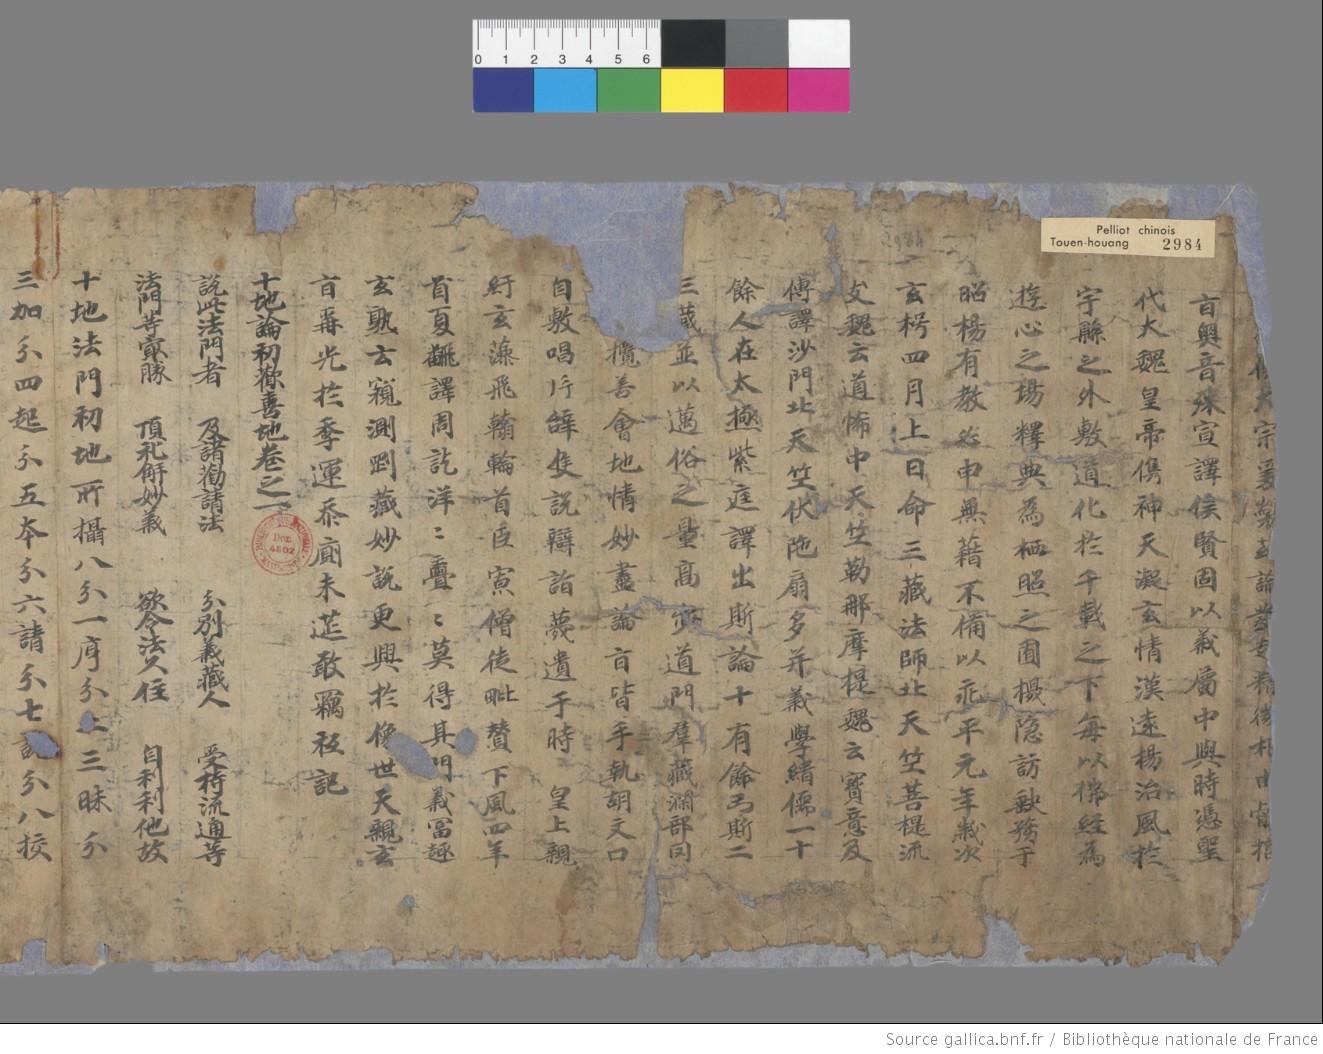 0 1 2 3 4 5 6
Pelliot chinois
Touen-houang 2984
旨興音殊宣譯俟賢固以義屬中興時憑聖
代大魏皇帝儁神天凝玄情漢遠揚治風於
宇縣之外敷道化於千載之下每以佛經為
遊心之場釋典為栖照之囿機隱訪缺務于
昭楊有教必申無藉不備以永平元年歲次
玄枵四月上日命三藏法師北天竺菩提流
支魏云道怖中天竺勒那摩提魏云寶意及
傳譯沙門北天竺伏陁扇多并義學緇儒一十
餘人在太極紫庭譯出斯論十有餘万斯二
三藏並以邁俗之量高道門羣藏
攬善會地情妙盡論旨皆手執胡文口
自敷唱片辭隻說辯詣蔑遺于時 皇上親
紆玄藻飛翰輪首臣僧徒毗贊下風四年
首夏翻譯周訖洋〻亹〻莫得其門義冨趣
玄孰云窺測剖藏妙說更興於像世天親玄
旨再光於季運忝廁末筵敢竊祖記
十地論初歡喜地卷之一
說此法門者 及諸勸請法 分別義藏人 受持流通等
法門等最勝 頂礼解妙義 欲令法久住 自利利他故
十地法門初地所攝八分一序分二三昧分
三加分四起分五本分六請分七分八挍
Don
4502
Source gallica.bnf.fr / Bibliothèque nationale de France